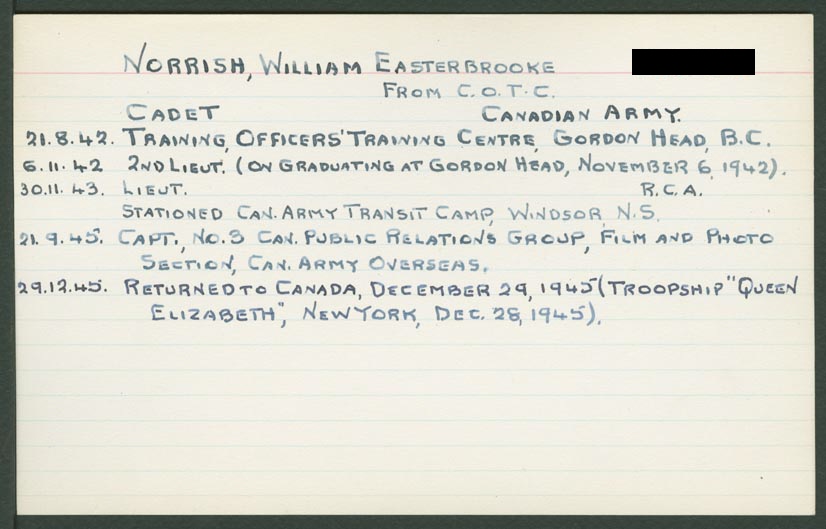 NORRISH, WILLIAM EASTERBROOKE
FROM C.O.T.C.
CADET CANADIAN ARMY.
21.8.42. TRAINING, OFFICERS' TRAINING CENTRE, GORDON HEAD, B.C.
6.11.42 2ND LIEUT. (ON GRADUATING AT GORDON HEAD, NOVEMBER 6, 1942).
30.11.43. LIEUT. R.C.A.
STATIONED CAN. ARMY TRANSIT CAMP, WINDSOR, N.S.
21.9.45. CAPT., NO.3 CAN. PUBLIC RELATIONS GROUP, FILM AND PHOTO
SECTION, CAN. ARMY OVERSEAS.
29.12.45. RETURNED TO CANADA, DECEMBER 29, 1945 (TROOPSHIP "QUEEN
ELIZABETH", NEW YORK, DEC. 28, 1945).